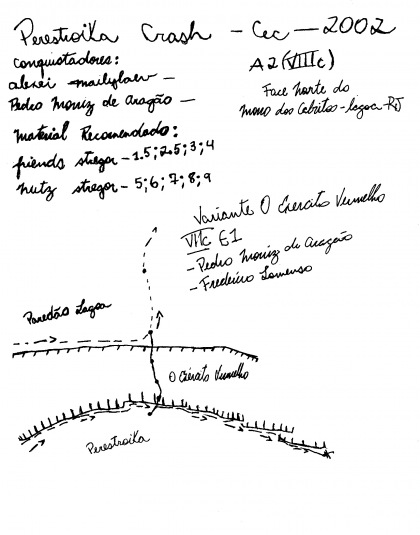 Perestroika Crash - Cec - 2002
A2 (VIIIc)
Face norte do
morro dos Cabritos - lagoa - RJ
conquistadores:
Pedro Moniz de Aragão -
material Recomendado:
friends - 1.5; 2.5; 3; 4
nutz - 5; 6; 7; 8; 9
Variante O Exército Vermelho
VIIc E1
- Pedro Moniz de Aragão
- Frederico
Paredão Lagoa
O Exército Vermelho
Perestroika